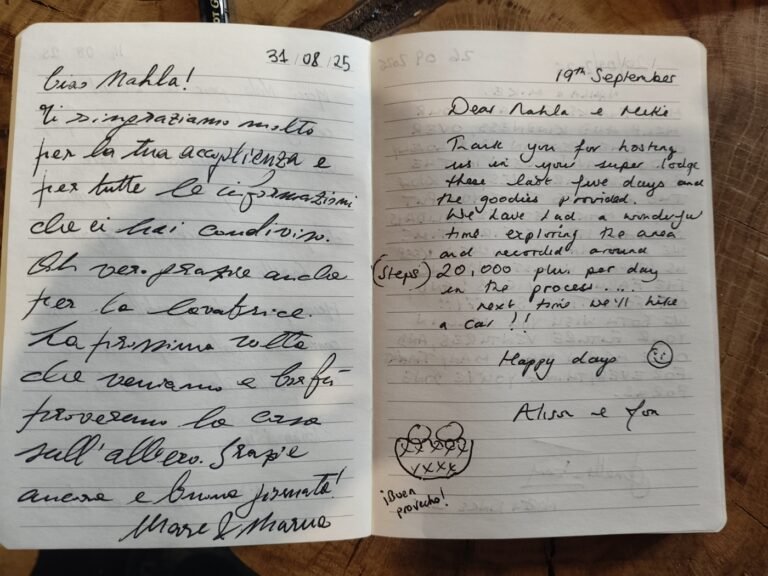 31/08/25
Ciao Mahla!
Ti ringraziamo molto
per la tua accoglienza e
per tutte le informazioni
che ci hai condiviso.
Oh vero grazie anche
per la lavatrice.
La prossima volta
che veniamo a Corfù
proveremo la casa
sull'albero. Grazie
ancora e buona giornata!
19th September
Dear Mahla e Mike
Thank you for hosting
us in your super lodge
these last five days and
the goodies provided.
We have had a wonderful
time exploring the area
and recorded around
(steps) 20,000 plus per day
in the process....
next time we'll hire
a car!!
Happy days
Alison e Jon
¡Buen
provecho!